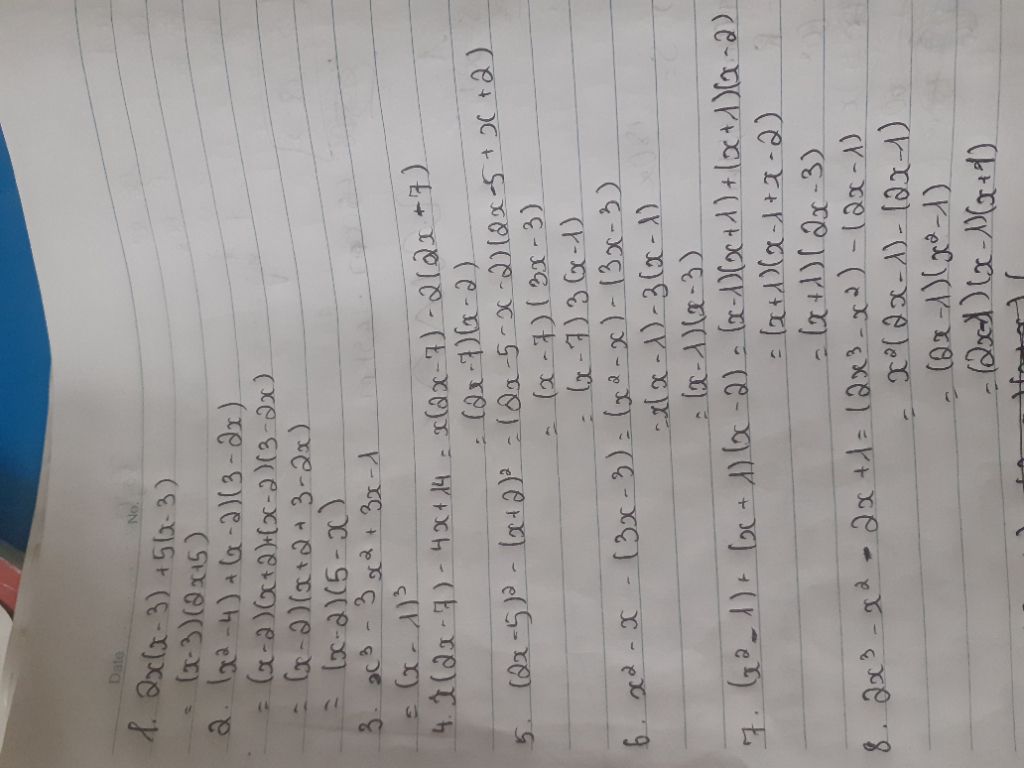 Date No.
1. 2x(x-3) + 5(x-3)
= (x-3)(2x+5)
2. (x²-4) + (x-2)(3-2x)
= (x-2)(x+2)+(x-2)(3-2x)
= (x-2)(x+2+3-2x)
= (x-2)(5-x)
3. x³ - 3x² + 3x - 1
= (x-1)³
4. x(2x-7) - 4x+14 = x(2x-7) - 2(2x+7)
= (2x-7)(x-2)
5. (2x-5)² - (x+2)² = (2x-5-x-2)(2x-5+x+2)
= (x-7)(3x-3)
= (x-7)3(x-1)
6. x² - x - (3x-3) = (x²-x) - (3x-3)
= x(x-1) - 3(x-1)
= (x-1)(x-3)
7. (x²-1) + (x+1)(x-2) = (x-1)(x+1)+(x+1)(x-2)
= (x+1)(x-1+x-2)
= (x+1)(2x-3)
8. 2x³ - x² - 2x + 1 = (2x³-x²) - (2x-1)
= x²(2x-1) - (2x-1)
= (2x-1)(x²-1)
= (2x-1)(x-1)(x+1)